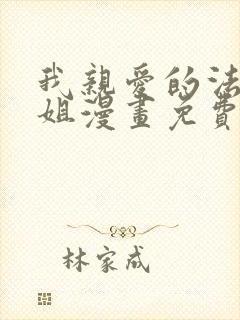 我親愛的法
姐漫畫免費
林家成